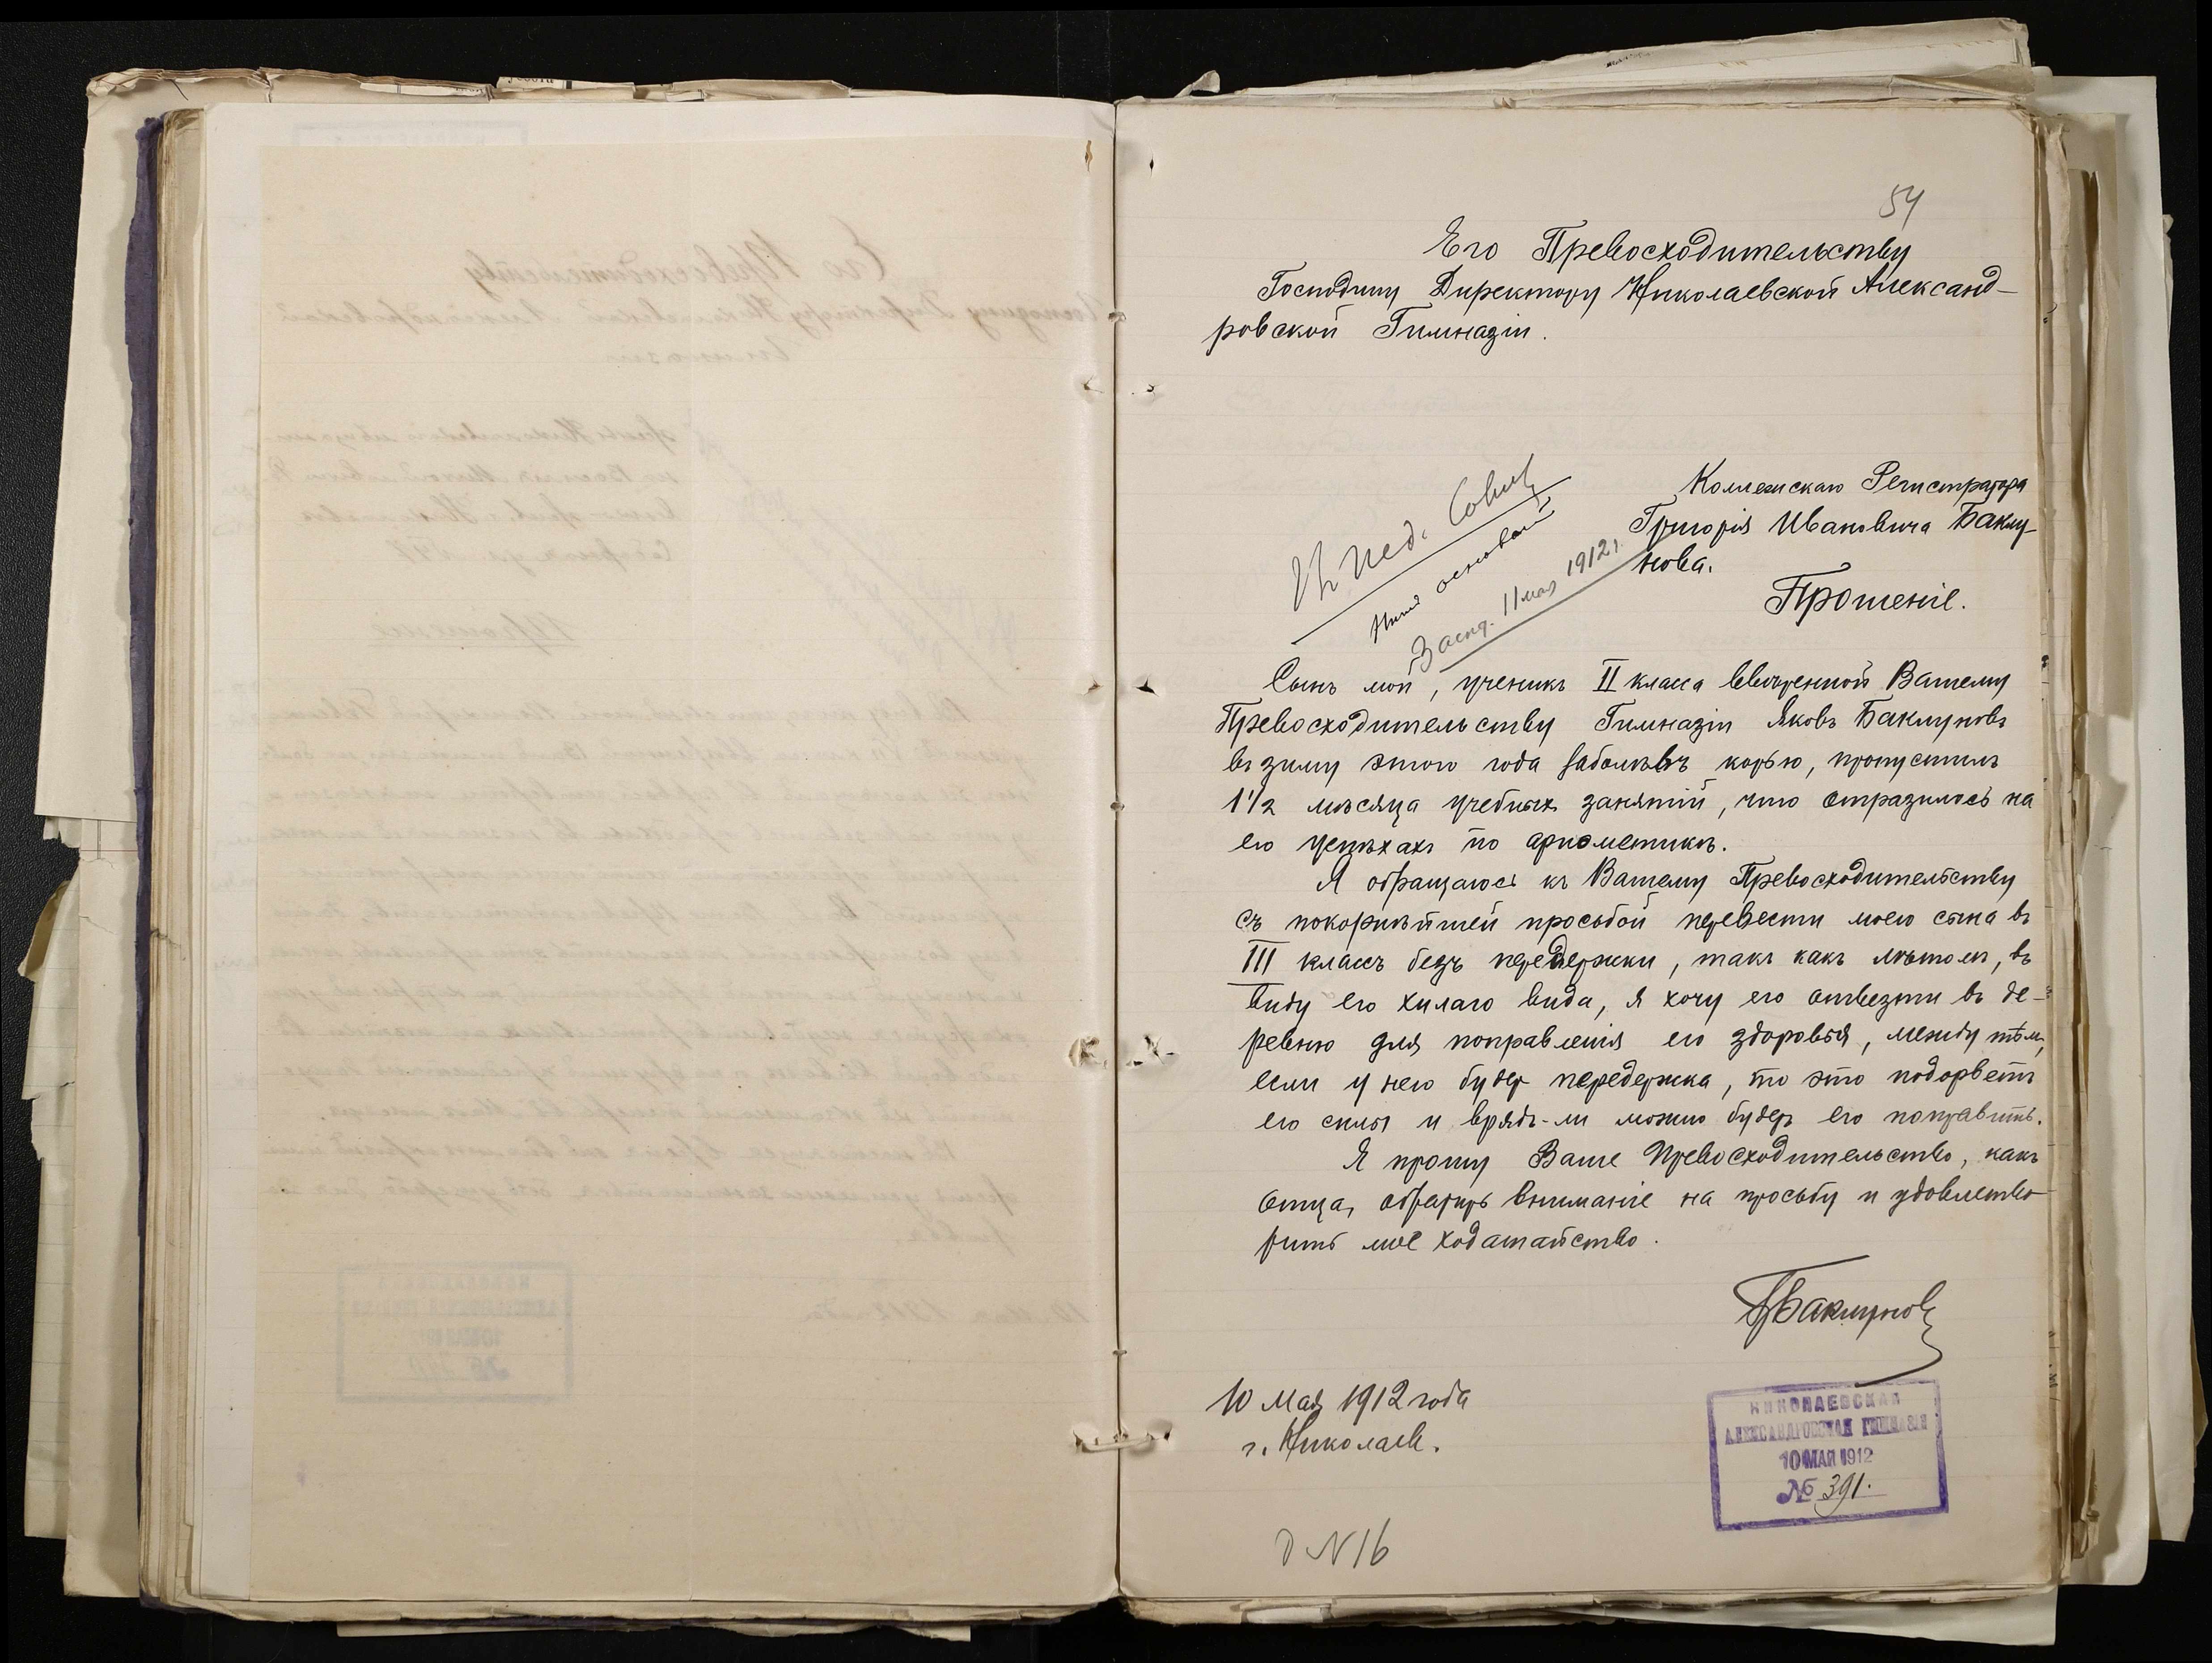 54
Его Превосходительству
Господину Директору Николаевской Александ-
ровской Гимназіи.
Коллежскаго Регистратора
Григорія Ивановича Баклу-
нова.
Прошеніе.
Въ Пед. Совѣтъ
Засѣд. 11 мая 1912 г.
Сынъ мой, ученикъ II класса ввѣренной Вашему
Превосходительству Гимназіи Яковъ Баклуновъ
въ зиму этого года заболѣвъ корью, пропустилъ
1 1/2 мѣсяца учебныхъ занятій, что отразилось на
его успѣхахъ по ариѳметикѣ.
Я обращаюсь къ Вашему Превосходительству
съ покорнѣйшей просьбой перевести моего сына въ
III классъ безъ передержки, такъ какъ лѣтомъ, въ
виду его хилаго вида, я хочу его отвезти въ де-
ревню для поправленія его здоровья, между тѣмъ,
если у него будетъ передержка, то это подорветъ
его силы и врядъ-ли можно будетъ его поправить.
Я прошу Ваше Превосходительство, какъ
отца, обратить вниманіе на просьбу и удовлетво-
рить мое ходатайство.
ГБаклуновъ
10 Мая 1912 года
г. Николаевъ.
НИКОЛАЕВСКАЯ
АЛЕКСАНДРОВСКАЯ ГИМНАЗІЯ
10 МАЯ 1912
№ 391.
д N 16